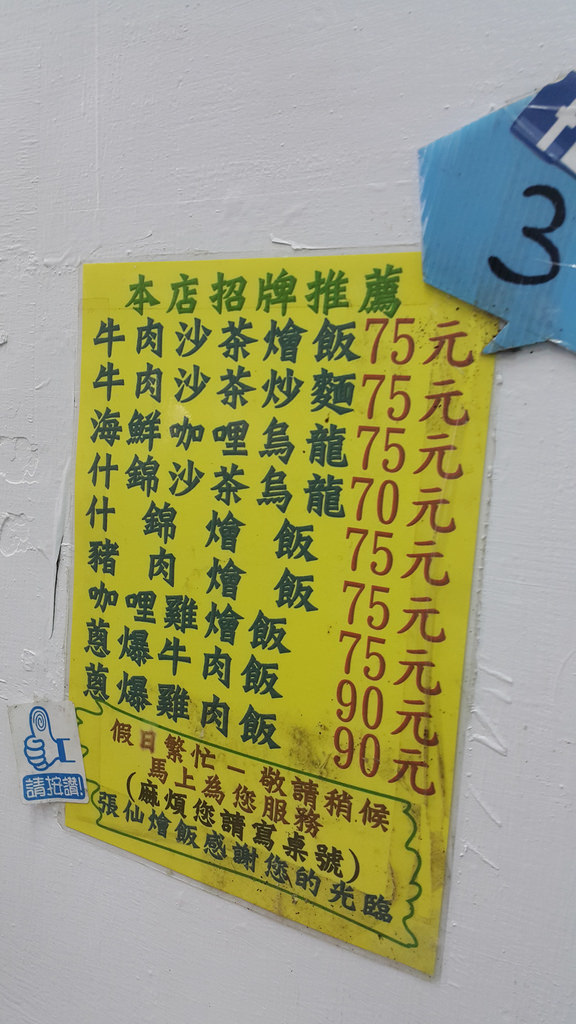 3
本店招牌推薦
牛肉沙茶燴飯75元
牛肉沙茶炒麵75元
海鮮咖哩烏龍75元
什錦沙茶烏龍70元
什錦燴飯75元
豬肉燴飯75元
咖哩雞燴飯75元
蔥爆牛肉飯90元
蔥爆雞肉飯90元
假日繁忙－敬請稍候
馬上為您服務
(麻煩您請寫桌號)
張仙燴飯感謝您的光臨
請按讚!